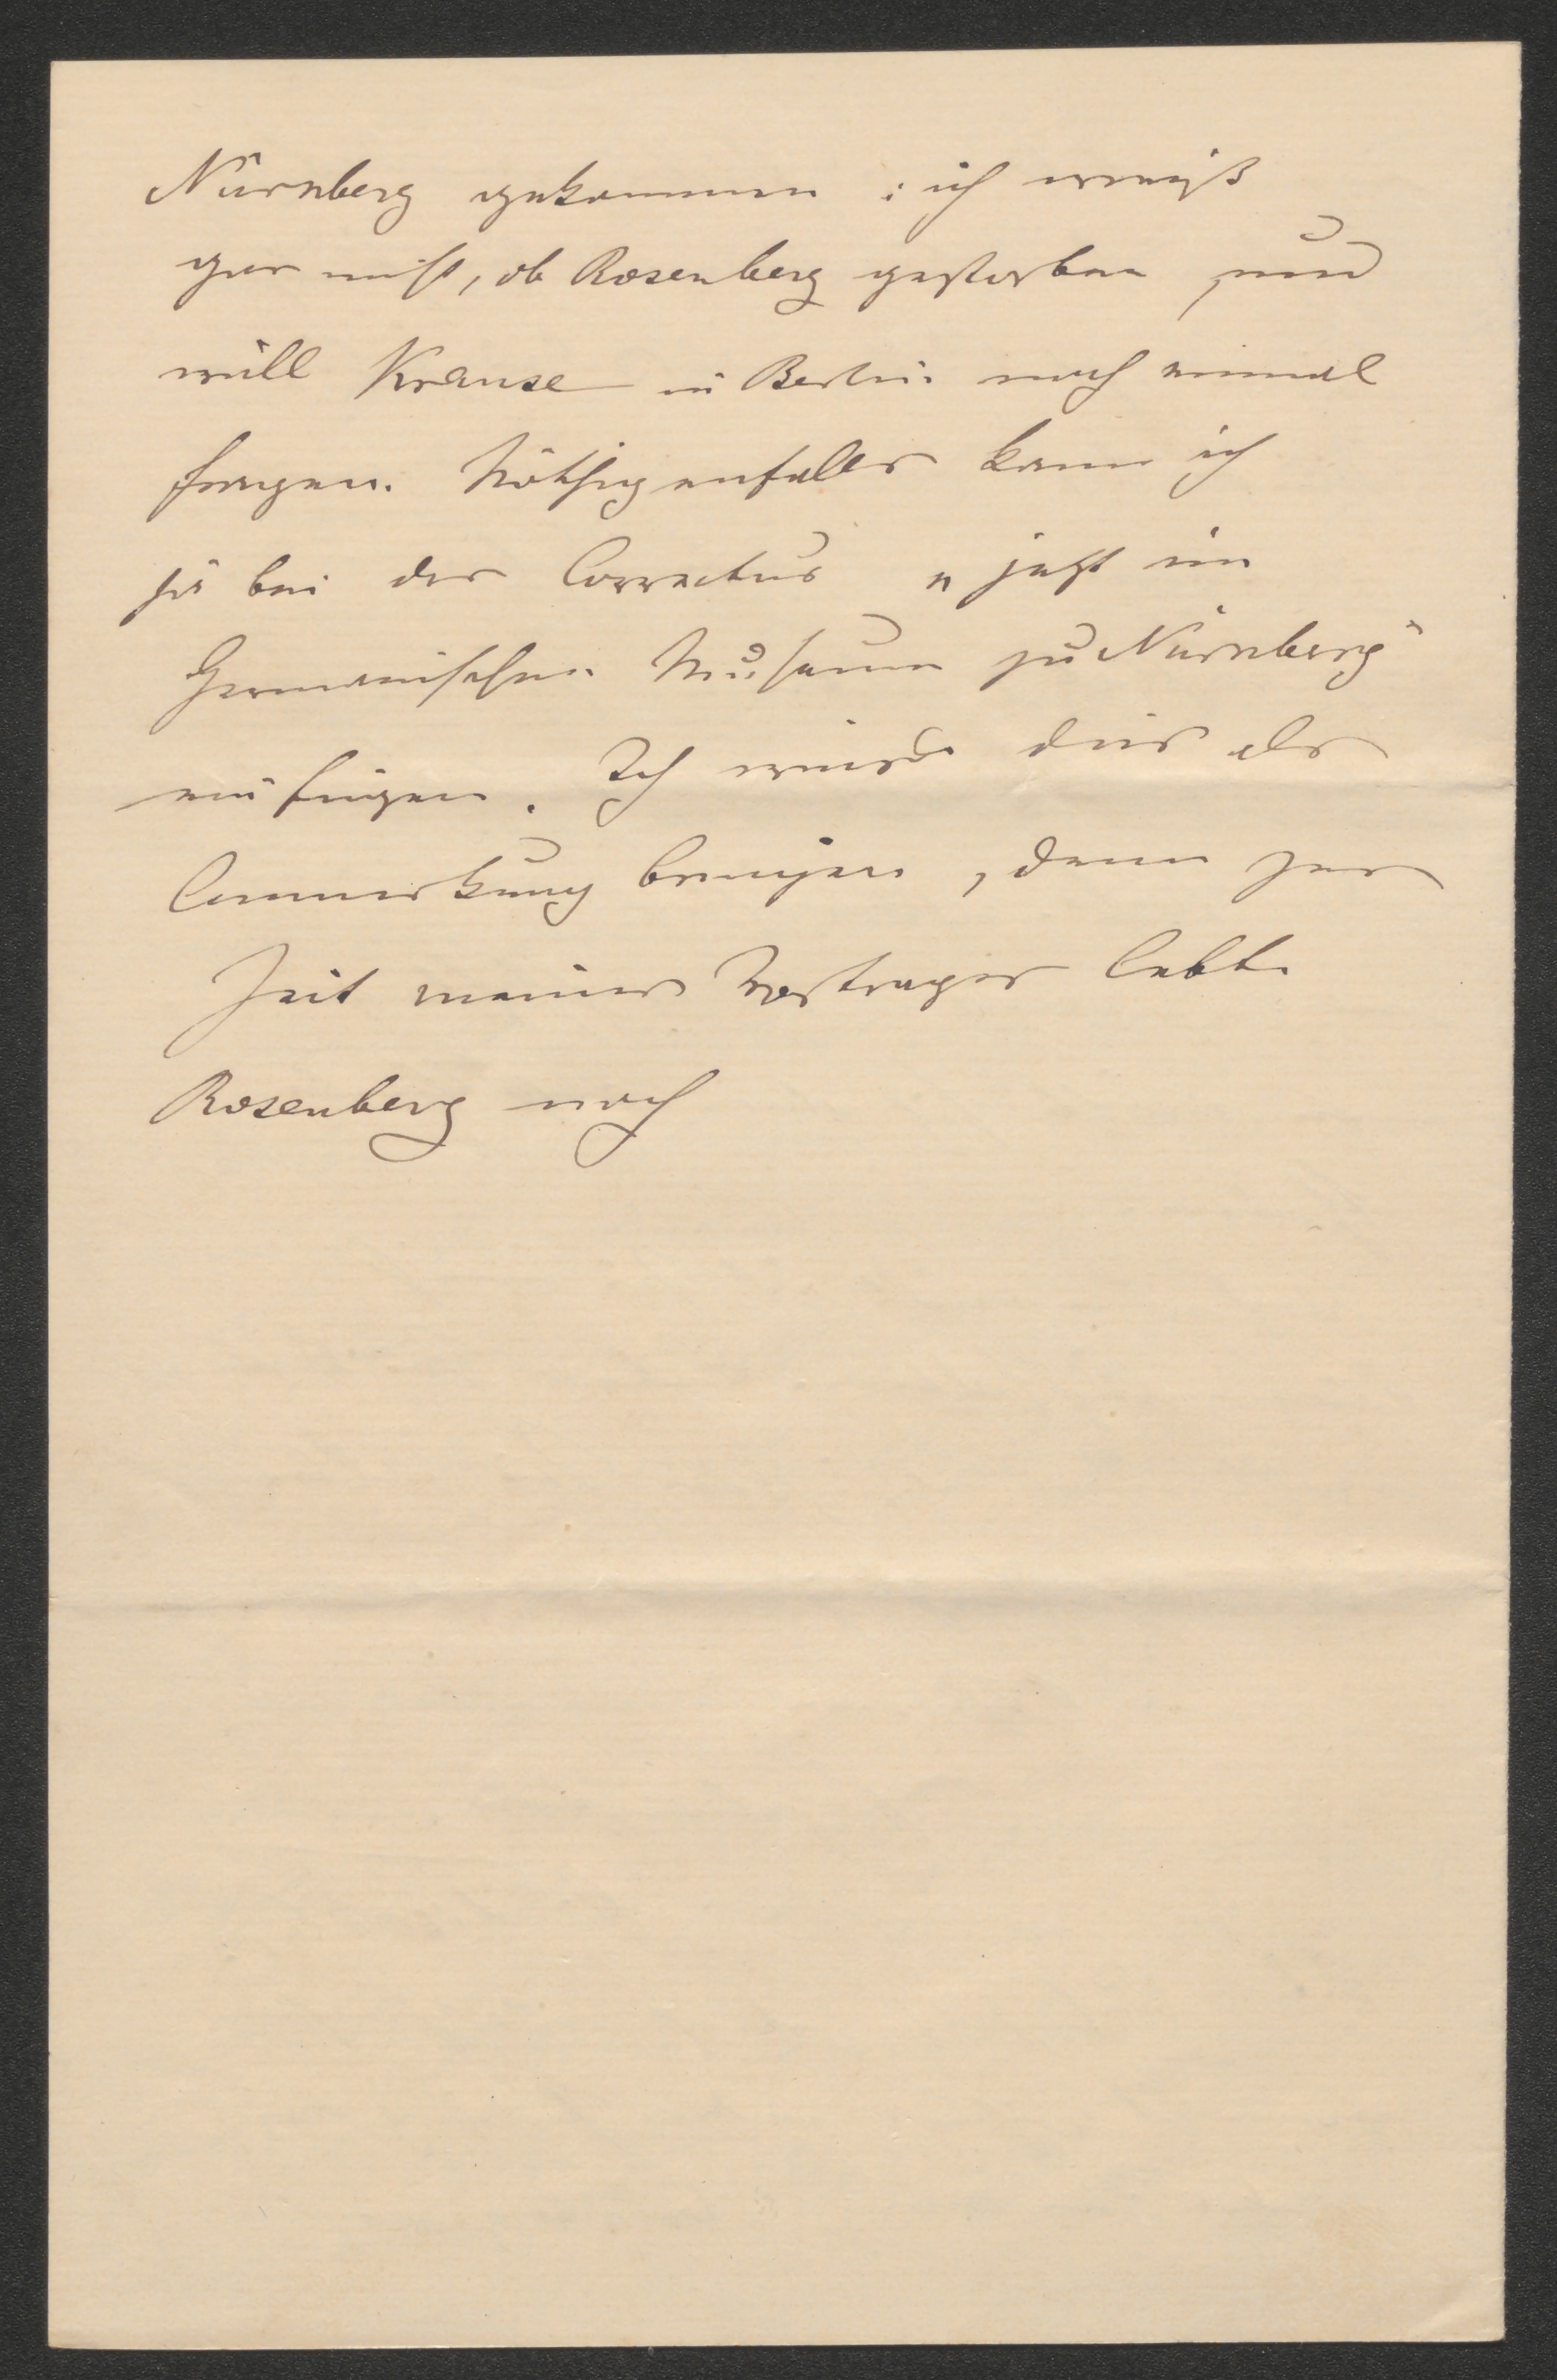 Nürnberg gekommen; ich weiß
gar nicht, ob Rosenberg gestorben, und
will Krause in Berlin noch einmal
fragen. Nöthigenfalls kann ich
ja bei der Correctur „jetzt im
Germanischen Museum zu Nürnberg“
einfügen. Ich würde dies als
Anmerkung bringen, denn zur
Zeit meines Vortrages lebte
Rosenberg noch